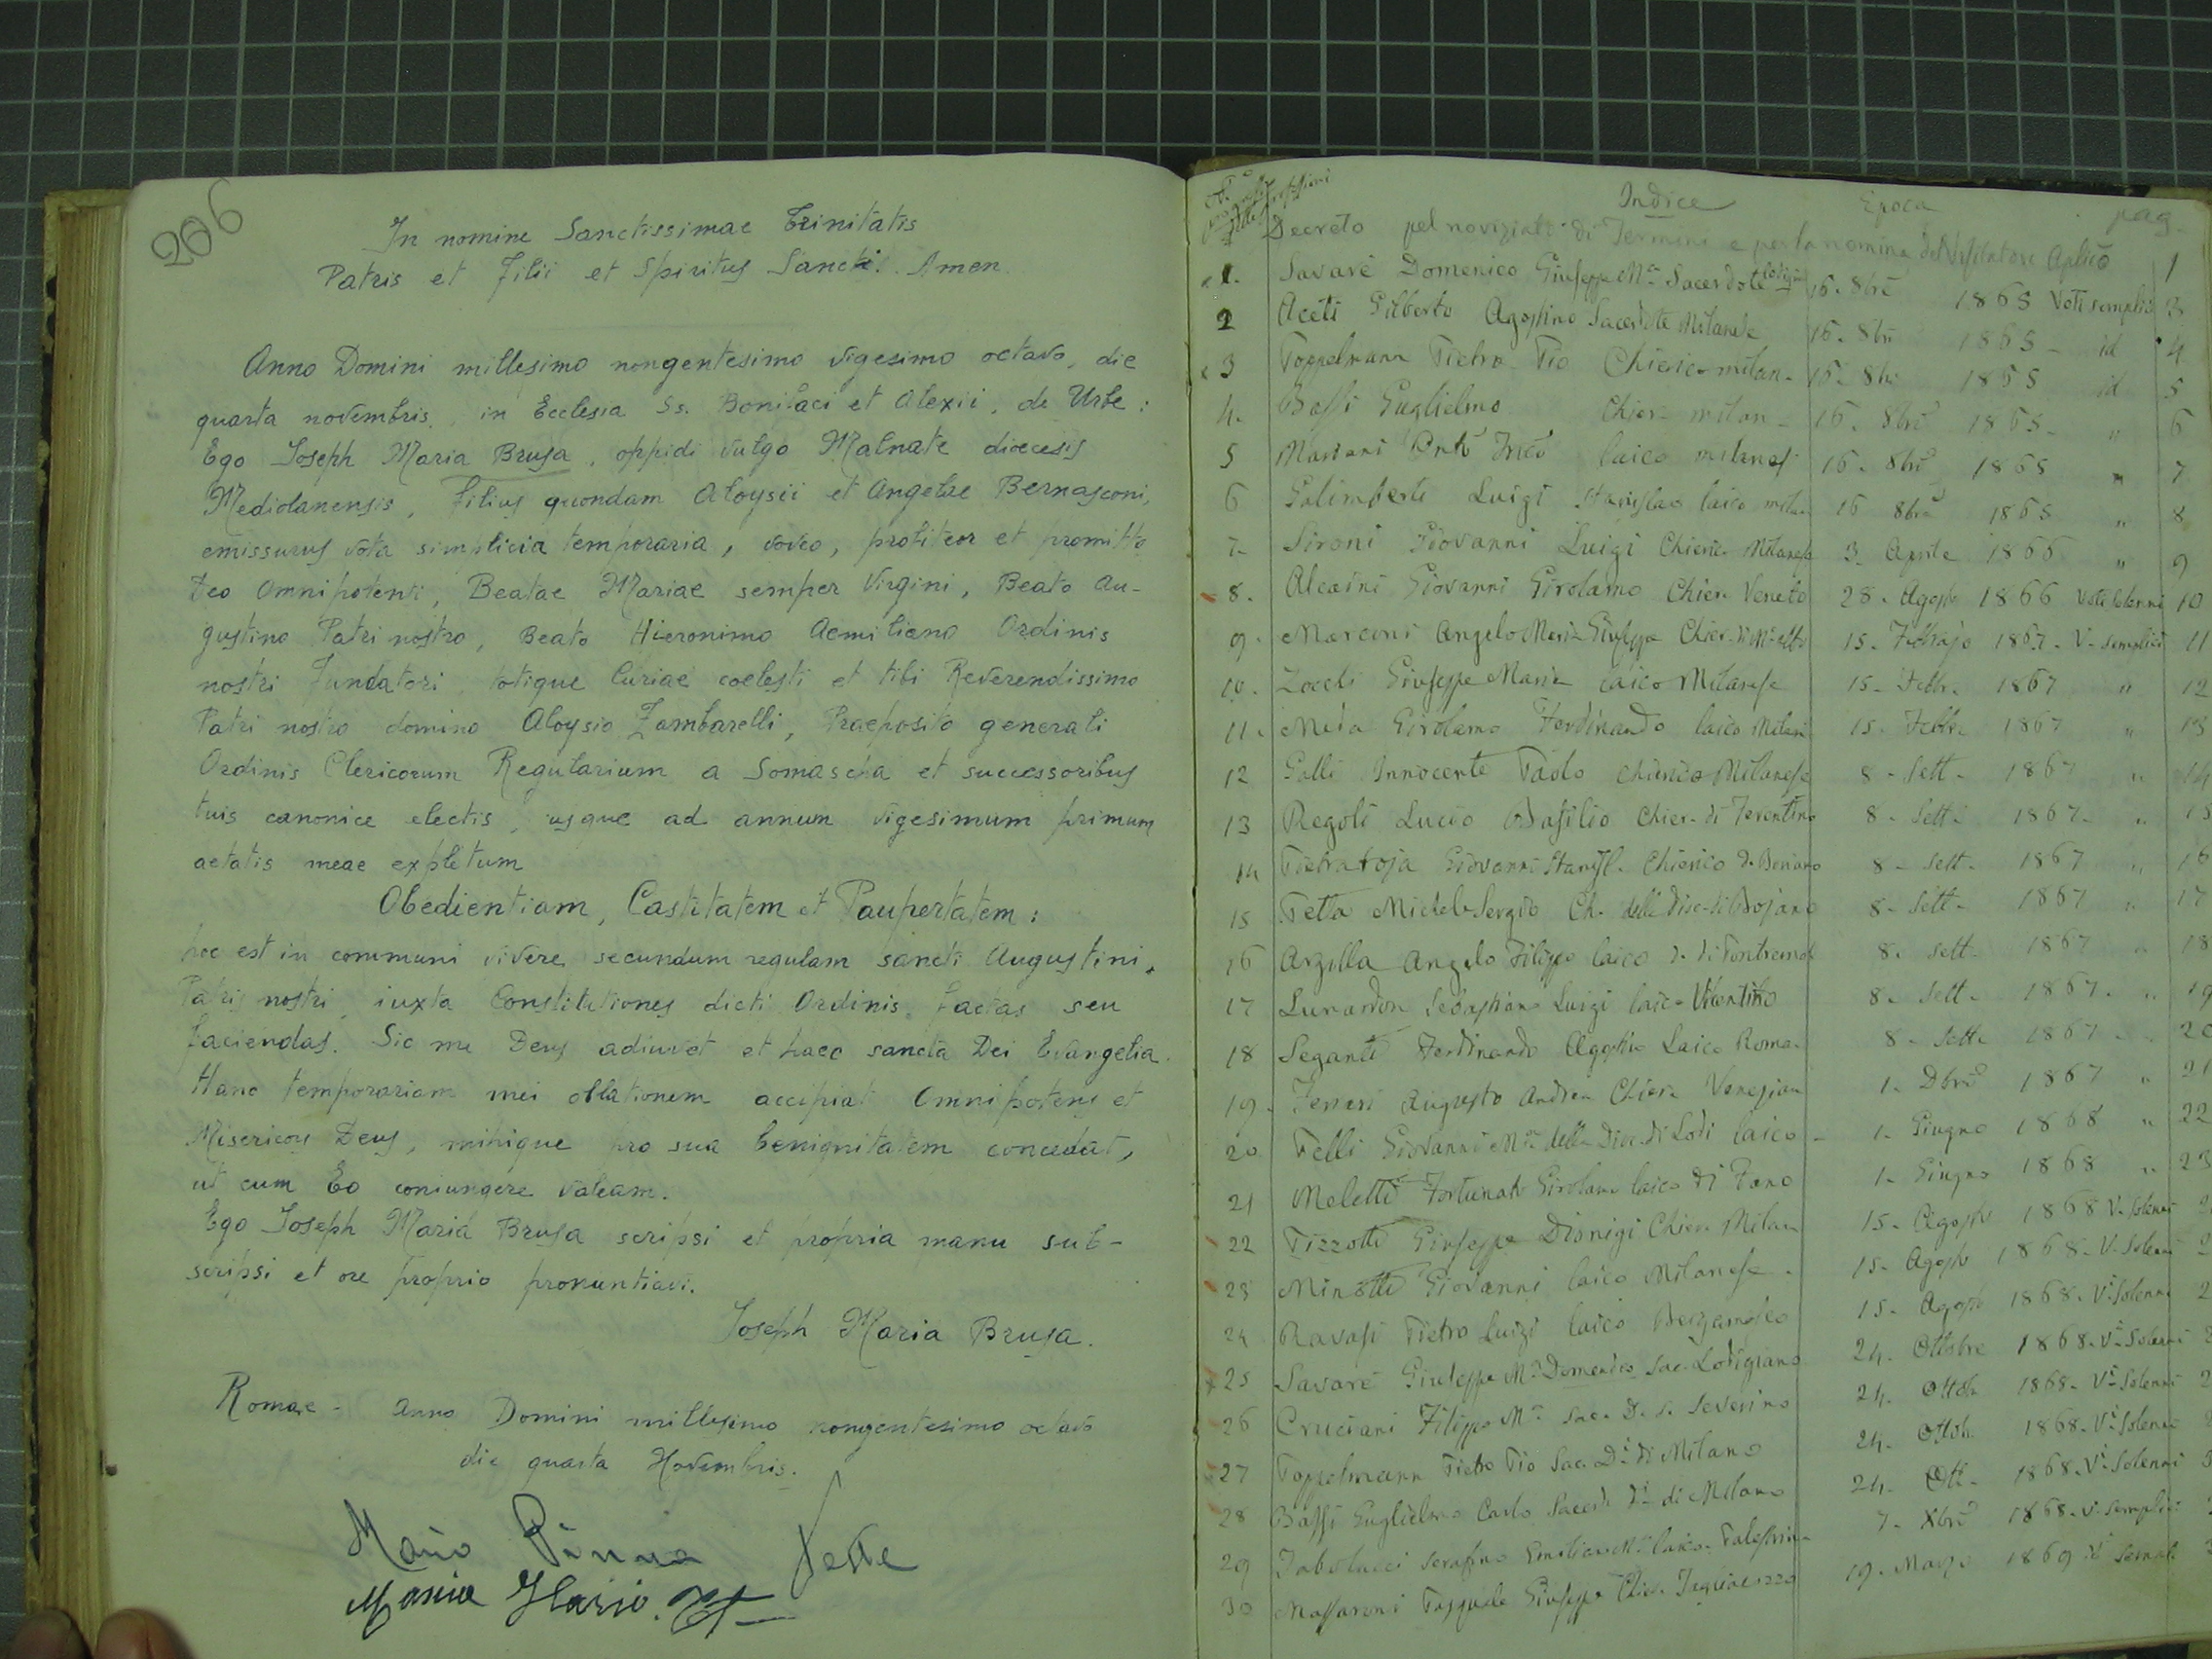 206
In nomine Sanctissimae Trinitatis
Patris et Filii et Spiritus Sancti. Amen.
Anno Domini millesimo nongentesimo vigesimo octavo, die
quarta novembris, in Ecclesia Ss. Bonifaci et Alexii, de Urbe:
Ego Joseph Maria Brusa, oppidi vulgo Malnate diocesis
Mediolanensis, filius quondam Aloysii et Angelae Bernasconi,
emissurus vota simplicia temporaria, voveo, profiteor et promitto
Deo Omnipotenti, Beatae Mariae semper Virgini, Beato Au-
gustino Patri nostro, Beato Hieronimo Aemiliano Ordinis
nostri Fundatori, totique Curiae coelesti et tibi Reverendissimo
Patri nostro domino Aloysio Zambarelli, Praeposito generali
Ordinis Clericorum Regularium a Somascha et successoribus
tuis canonice electis, usque ad annum vigesimum primum
aetatis meae expletum
Obedientiam, Castitatem et Paupertatem:
hoc est in communi vivere secundum regulam sancti Augustini,
Patris nostri, iuxta Constitutiones dicti Ordinis factas seu
faciendas. Sic me Deus adiuvet et haec sancta Dei Evangelia.
Hanc temporariam mei oblationem accipiat Omnipotens et
Misericors Deus, mihique pro sua benignitatem concedat,
ut cum Eo coniungere valeam.
Ego Joseph Maria Brusa scripsi et propria manu sub-
scripsi et ore proprio pronuntiavi.
Joseph Maria Brusa.
Romae - Anno Domini millesimo nongentesimo octavo
die quarta Novembris.
Mario Pinna
Teste
Indice Epoca pag.
Decreto pel noviziato di Termini e per la nomina del Visitatore Aplico 1
1. Savarè Domenico Giuseppe Ma Sacerdote Lodigiano 16. 8bre 1865 Voti semplici 3
2 Aceti Gilberto Agostino Sacerdote Milanese 16. 8bre 1865 - id 4
3 Toppelmann Pietro Pio Chierico milan. 16. 8bre 1865 id 5
4. Bassi Guglielmo Chier. milan - 16. 8bre 1865 - " 6
5 Mariani laico milanese 16. 8bre 1865 " 7
6 Galimberti Luigi Stanislao laico milan 16 8bre 1865 " 8
7. Sironi Giovanni Luigi Chierico Milanese 3. Aprile 1866 " 9
8. Alcaini Giovanni Girolamo Chier. Veneto 28. Agosto 1866 Voti solenni 10
9. Marconi Angelo Maria Giuseppe Chier. 15. Febbrajo 1867. V. semplici 11
10. Zocchi Giuseppe Maria laico Milanese 15. Febbr. 1867 " 12
11. Meda Girolamo Ferdinando laico Milan 15. Febbr. 1867 " 13
12 Galli Innocente Paolo Chierico Milanese 8 - Sett - 1867 " 14
13 Regoli Lucio Basilio Chier. di Ferentino 8 - Sett - 1867 - " 15
14 Pietratoja Giovanni Stanisl. Chierico 8 - Sett - 1867 " 16
15 Petta Michele Sergio Ch. della Dioc. di Bojano 8. Sett - 1867 " 17
16 Arzilla Angelo Filippo laico D. di Pontremoli 8. Sett - 1867 " 18
17 Lunardon Sebastiano Luigi laico Vicentino 8. Sett - 1867. " 19
18 Seganti Ferdinando Agostino Laico Roma. 8. Sett. 1867 - " 20
19. Ferrari Augusto Andrea Chier. Venezian 1. 1867 " 21
20 Felli Giovanni Ma della Dioc. di Lodi laico - 1. Giugno 1868 " 22
21 Meletti Fortunato Girolamo laico di Fano 1. Giugno 1868 " 23
22 Pizzotti Giuseppe Dionigi Chier. Milan 15. Agosto 1868 V. solenni
23 Minotti Giovanni laico Milanese. 15. Agosto 1868. V. Solenni
24 Ravasi Pietro Luigi laico Bergamasco 15. Agosto 1868. Vi Solenni
25 Savarè Giuseppe Ma Domenico Sac. Lodigiano 24. Ottobre 1868. Vi Solenni
26 Cruciani Filippo Ma Sac. D. S. Severino 24. Ottob. 1868. Vi Solenni
27 Toppelmann Pietro Pio Sac. Di di Milano 24. Ottob. 1868. Vi Solenni
28 Bassi Guglielmo Carlo Sacerd. Di di Milano 24. Ott. 1868. Vi Solenni
29 Jabolucci Serafino Emiliano Ma laico 7. Xbre 1868. V. semplici
30 Massaroni Pasquale Giuseppe Chier. 19. Marzo 1869 Vi